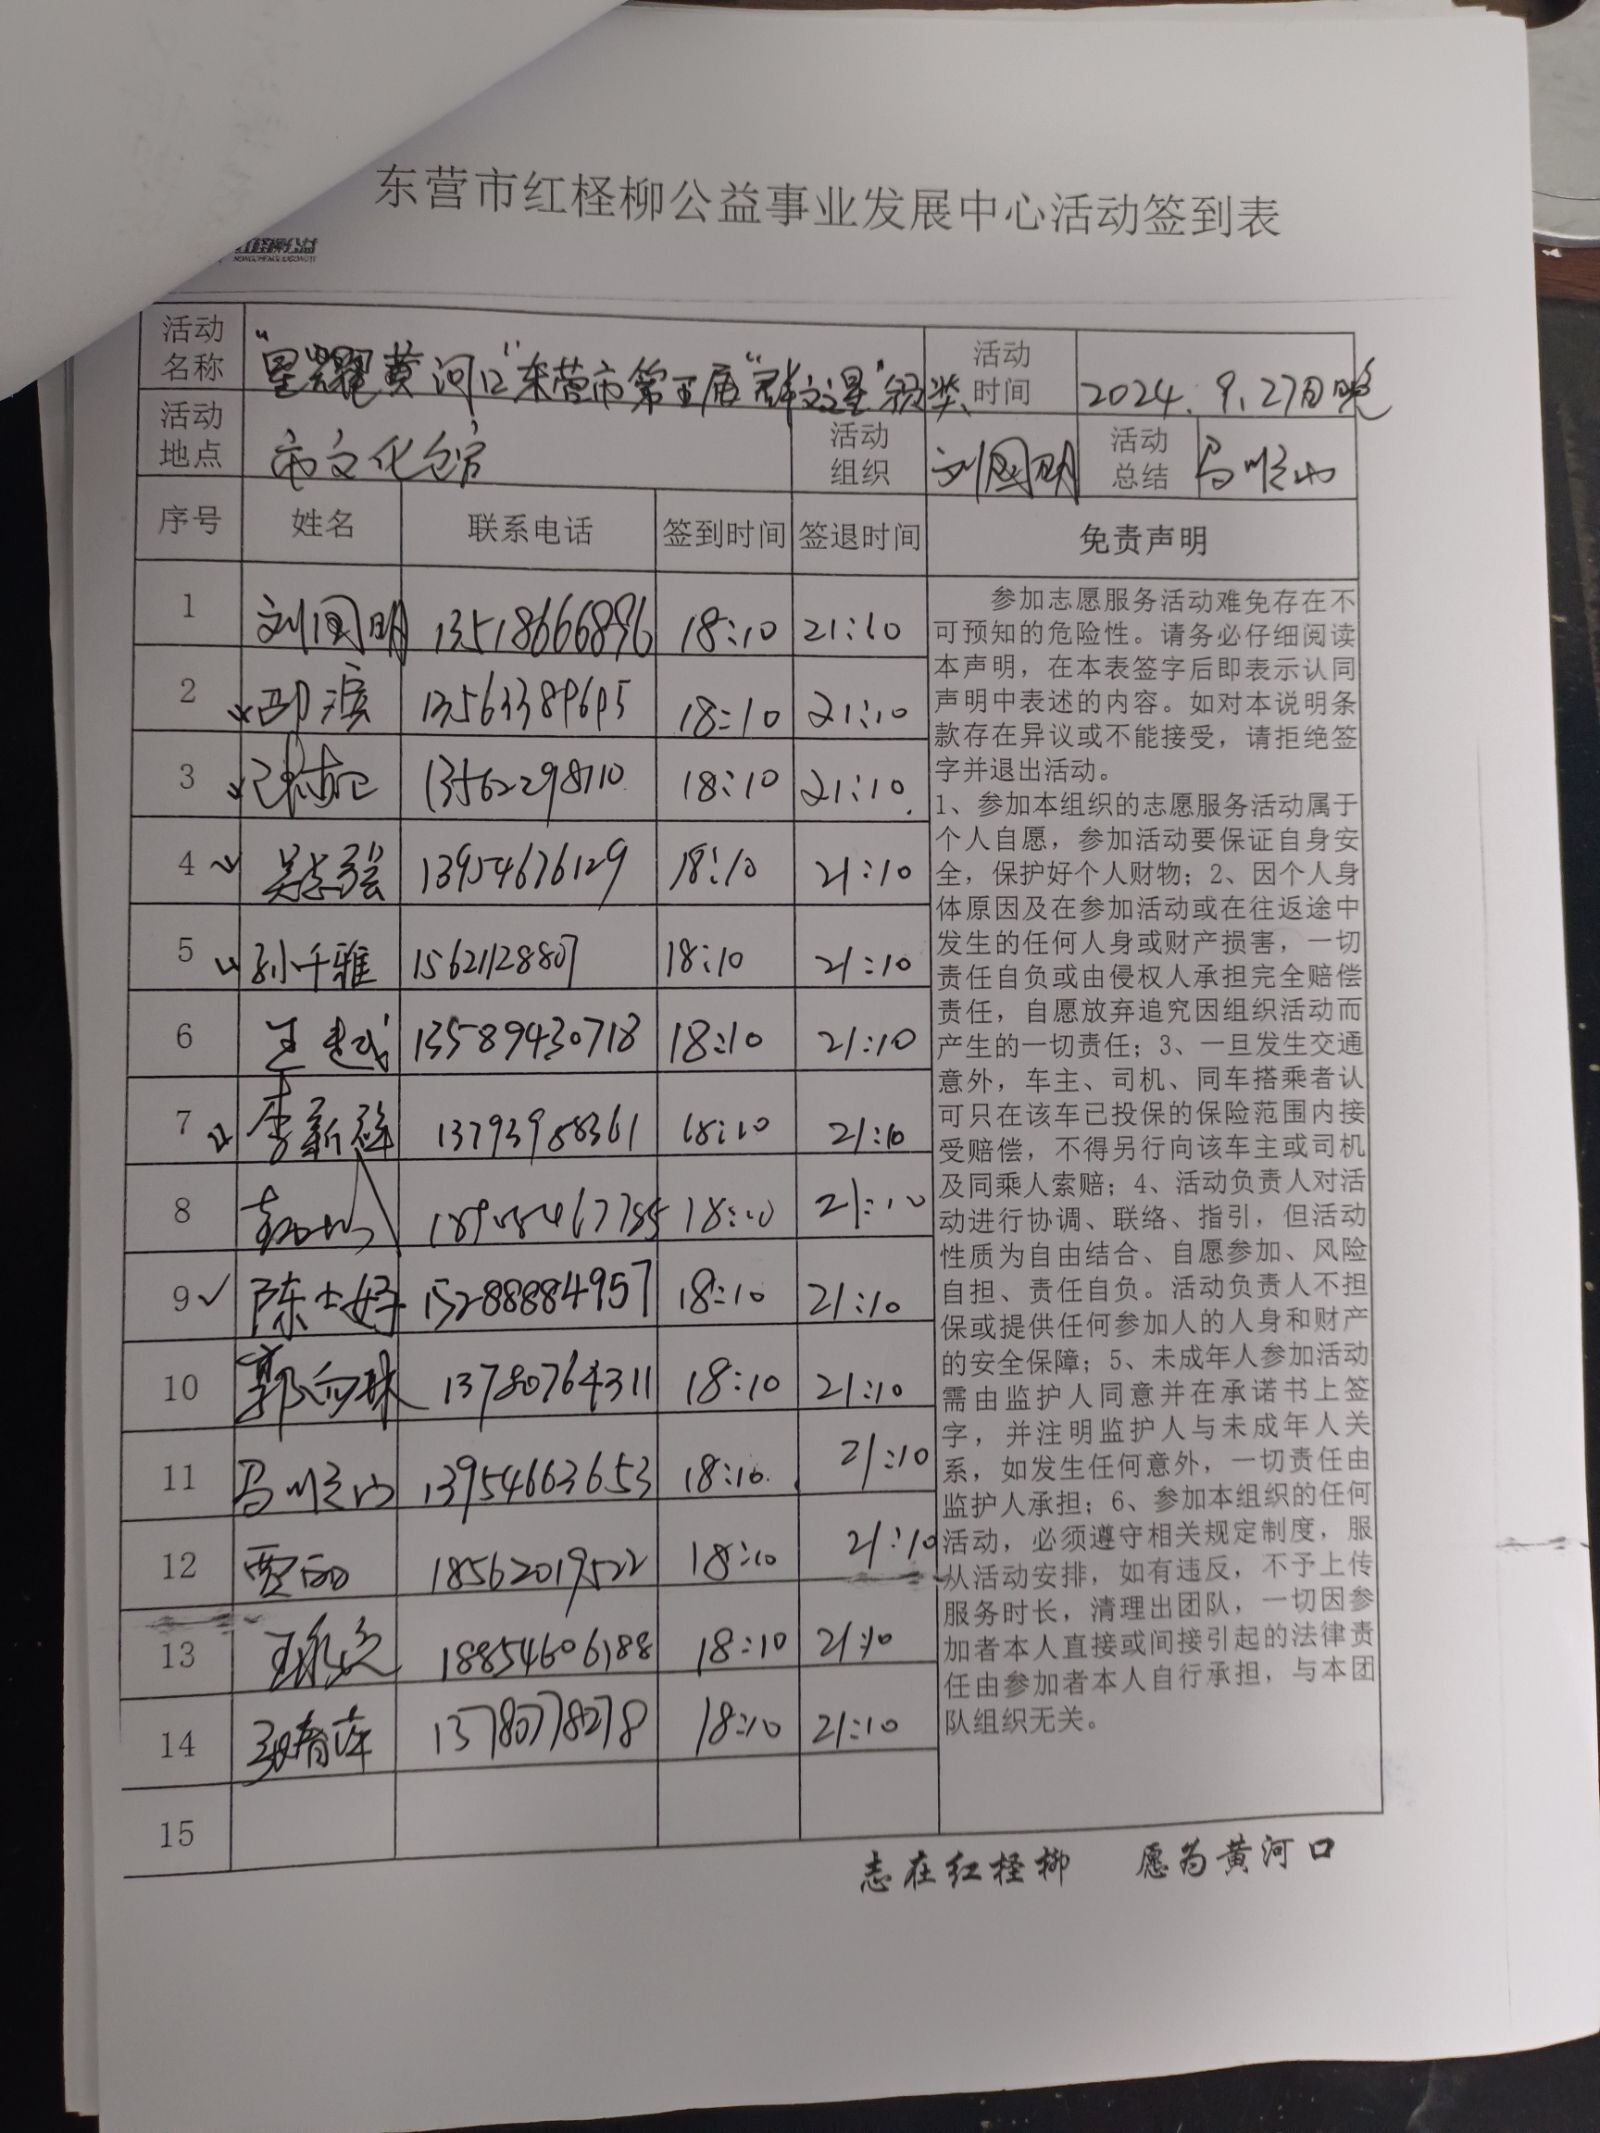 东营市红柽柳公益事业发展中心活动签到表
红柽柳公益
活动名称 “星耀黄河口”东营市第五届“群文星”颁奖 活动时间 2024.9.27日晚
活动地点 市文化馆 活动组织 刘国明 活动总结 马顺山
序号 姓名 联系电话 签到时间 签退时间 免责声明
1 刘国明 13518666896 18:10 21:10
2 邵滨 13563389695 18:10 21:10
3 13562298110 18:10 21:10
4 吴志强 13954676129 18:10 21:10
5 孙千雅 15621128807 18:10 21:10
6 王建武 13589430718 18:10 21:10
7 李新 13793988361 18:10 21:10
8 18:10 21:10
9 陈士好 15288884957 18:10 21:10
10 郭向林 13780764311 18:10 21:10
11 马顺山 13954663653 18:10 21:10
12 贾丽 18562019522 18:10 21:10
13 18854606188 18:10 21:10
14 13780778278 18:10 21:10
15
参加志愿服务活动难免存在不
可预知的危险性。请务必仔细阅读
本声明，在本表签字后即表示认同
声明中表述的内容。如对本说明条
款存在异议或不能接受，请拒绝签
字并退出活动。
1、参加本组织的志愿服务活动属于
个人自愿，参加活动要保证自身安
全，保护好个人财物；2、因个人身
体原因及在参加活动或在往返途中
发生的任何人身或财产损害，一切
责任自负或由侵权人承担完全赔偿
责任，自愿放弃追究因组织活动而
产生的一切责任；3、一旦发生交通
意外，车主、司机、同车搭乘者认
可只在该车已投保的保险范围内接
受赔偿，不得另行向该车主或司机
及同乘人索赔；4、活动负责人对活
动进行协调、联络、指引，但活动
性质为自由结合、自愿参加、风险
自担、责任自负。活动负责人不担
保或提供任何参加人的人身和财产
的安全保障；5、未成年人参加活动
需由监护人同意并在承诺书上签
字，并注明监护人与未成年人关
系，如发生任何意外，一切责任由
监护人承担；6、参加本组织的任何
活动，必须遵守相关规定制度，服
从活动安排，如有违反，不予上传
服务时长，清理出团队，一切因参
加者本人直接或间接引起的法律责
任由参加者本人自行承担，与本团
队组织无关。
志在红柽柳 愿为黄河口